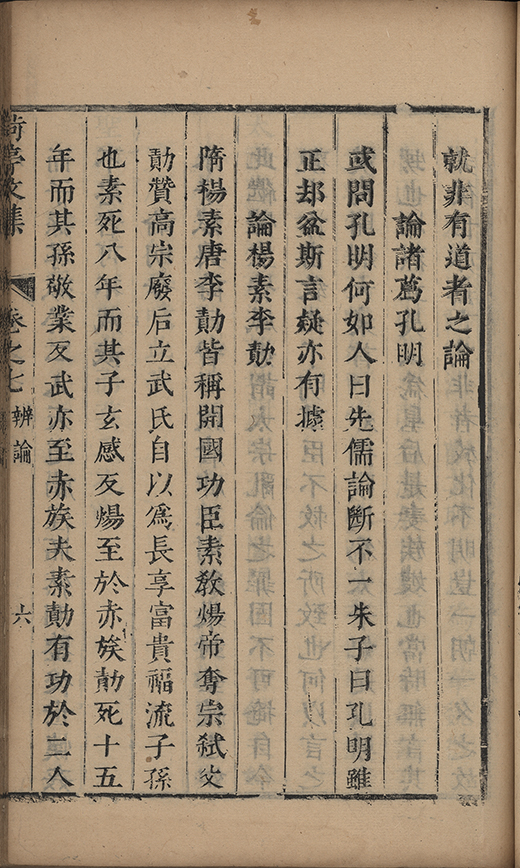 就非有道者之論
論諸葛孔明
或問孔明何如人曰先儒論斷不一朱子曰孔明雖
正却盆斯言疑亦有據
論楊素李勣
隋楊素唐李勣皆稱開國功臣素教煬帝奪宗弑父
勣贊高宗廢后立武氏自以爲長享富貴福流子孫
也素死八年而其子玄感反煬至於赤族勣死十五
年而其孫敬業反武亦至赤族夫素勣有功於二人
亭文集 卷之七 辨論 六